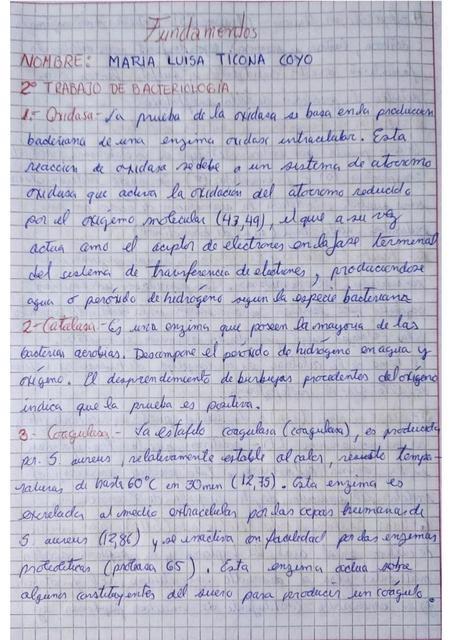 Fundamentos
NOMBRE: MARIA LUISA TICONA COYO
2º TRABAJO DE BACTERIOLOGIA
1.- Oxidasa - La prueba de la oxidasa se basa en la produccion
bacteriana de una enzima oxidasa intracelular. Esta
reaccion de oxidasa se debe a un sistema de citocromo
oxidasa que activa la oxidación del citocromo reducido
por el oxigeno molecular (43,49), el que a su vez
actua como el aceptor de electrones en la fase terminal
del sistema de transferencia de electrones, produciendose
agua o peroxido de hidrógeno segun la especie bacteriana
2-Catalasa - Es una enzima que poseen la mayoria de las
bacterias aerobias. Descompone el peróxido de hidrógeno en agua y
oxígeno. El desprendimiento de burbujas procedentes del oxígeno
indica que la prueba es positiva.
3.- Coagulasa - La estafilo coagulasa (coagulasa), es producida
por. S. aureus, relativamente estable al calor, resiste tempe-
raturas de hasta 60°C en 30min (12,75). Esta enzima es
excretada al medio extracelular por las cepas humanas de
S aureus (12,86) y se inactiva con facilidad por las enzimas
proteoliticas (proteasa 65). Esta enzima actua sobre
algunos constituyentes del suero para producir un coagulo.